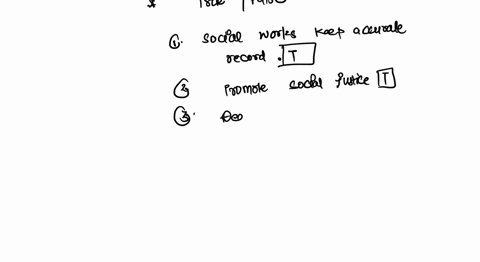 True | False
①. social works keep accurate
record . T
② Promote social Justice T
③. Deo